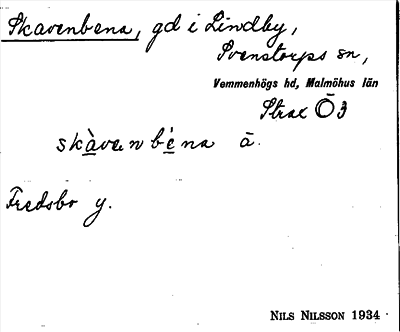 Skavenbena, gd i Lindby,
Svenstorps sn,
Vemmenhögs hd, Malmöhus län
Strax Ö 3
skàvenbéna ā.
Fredsbo y.
NILS NILSSON 1934